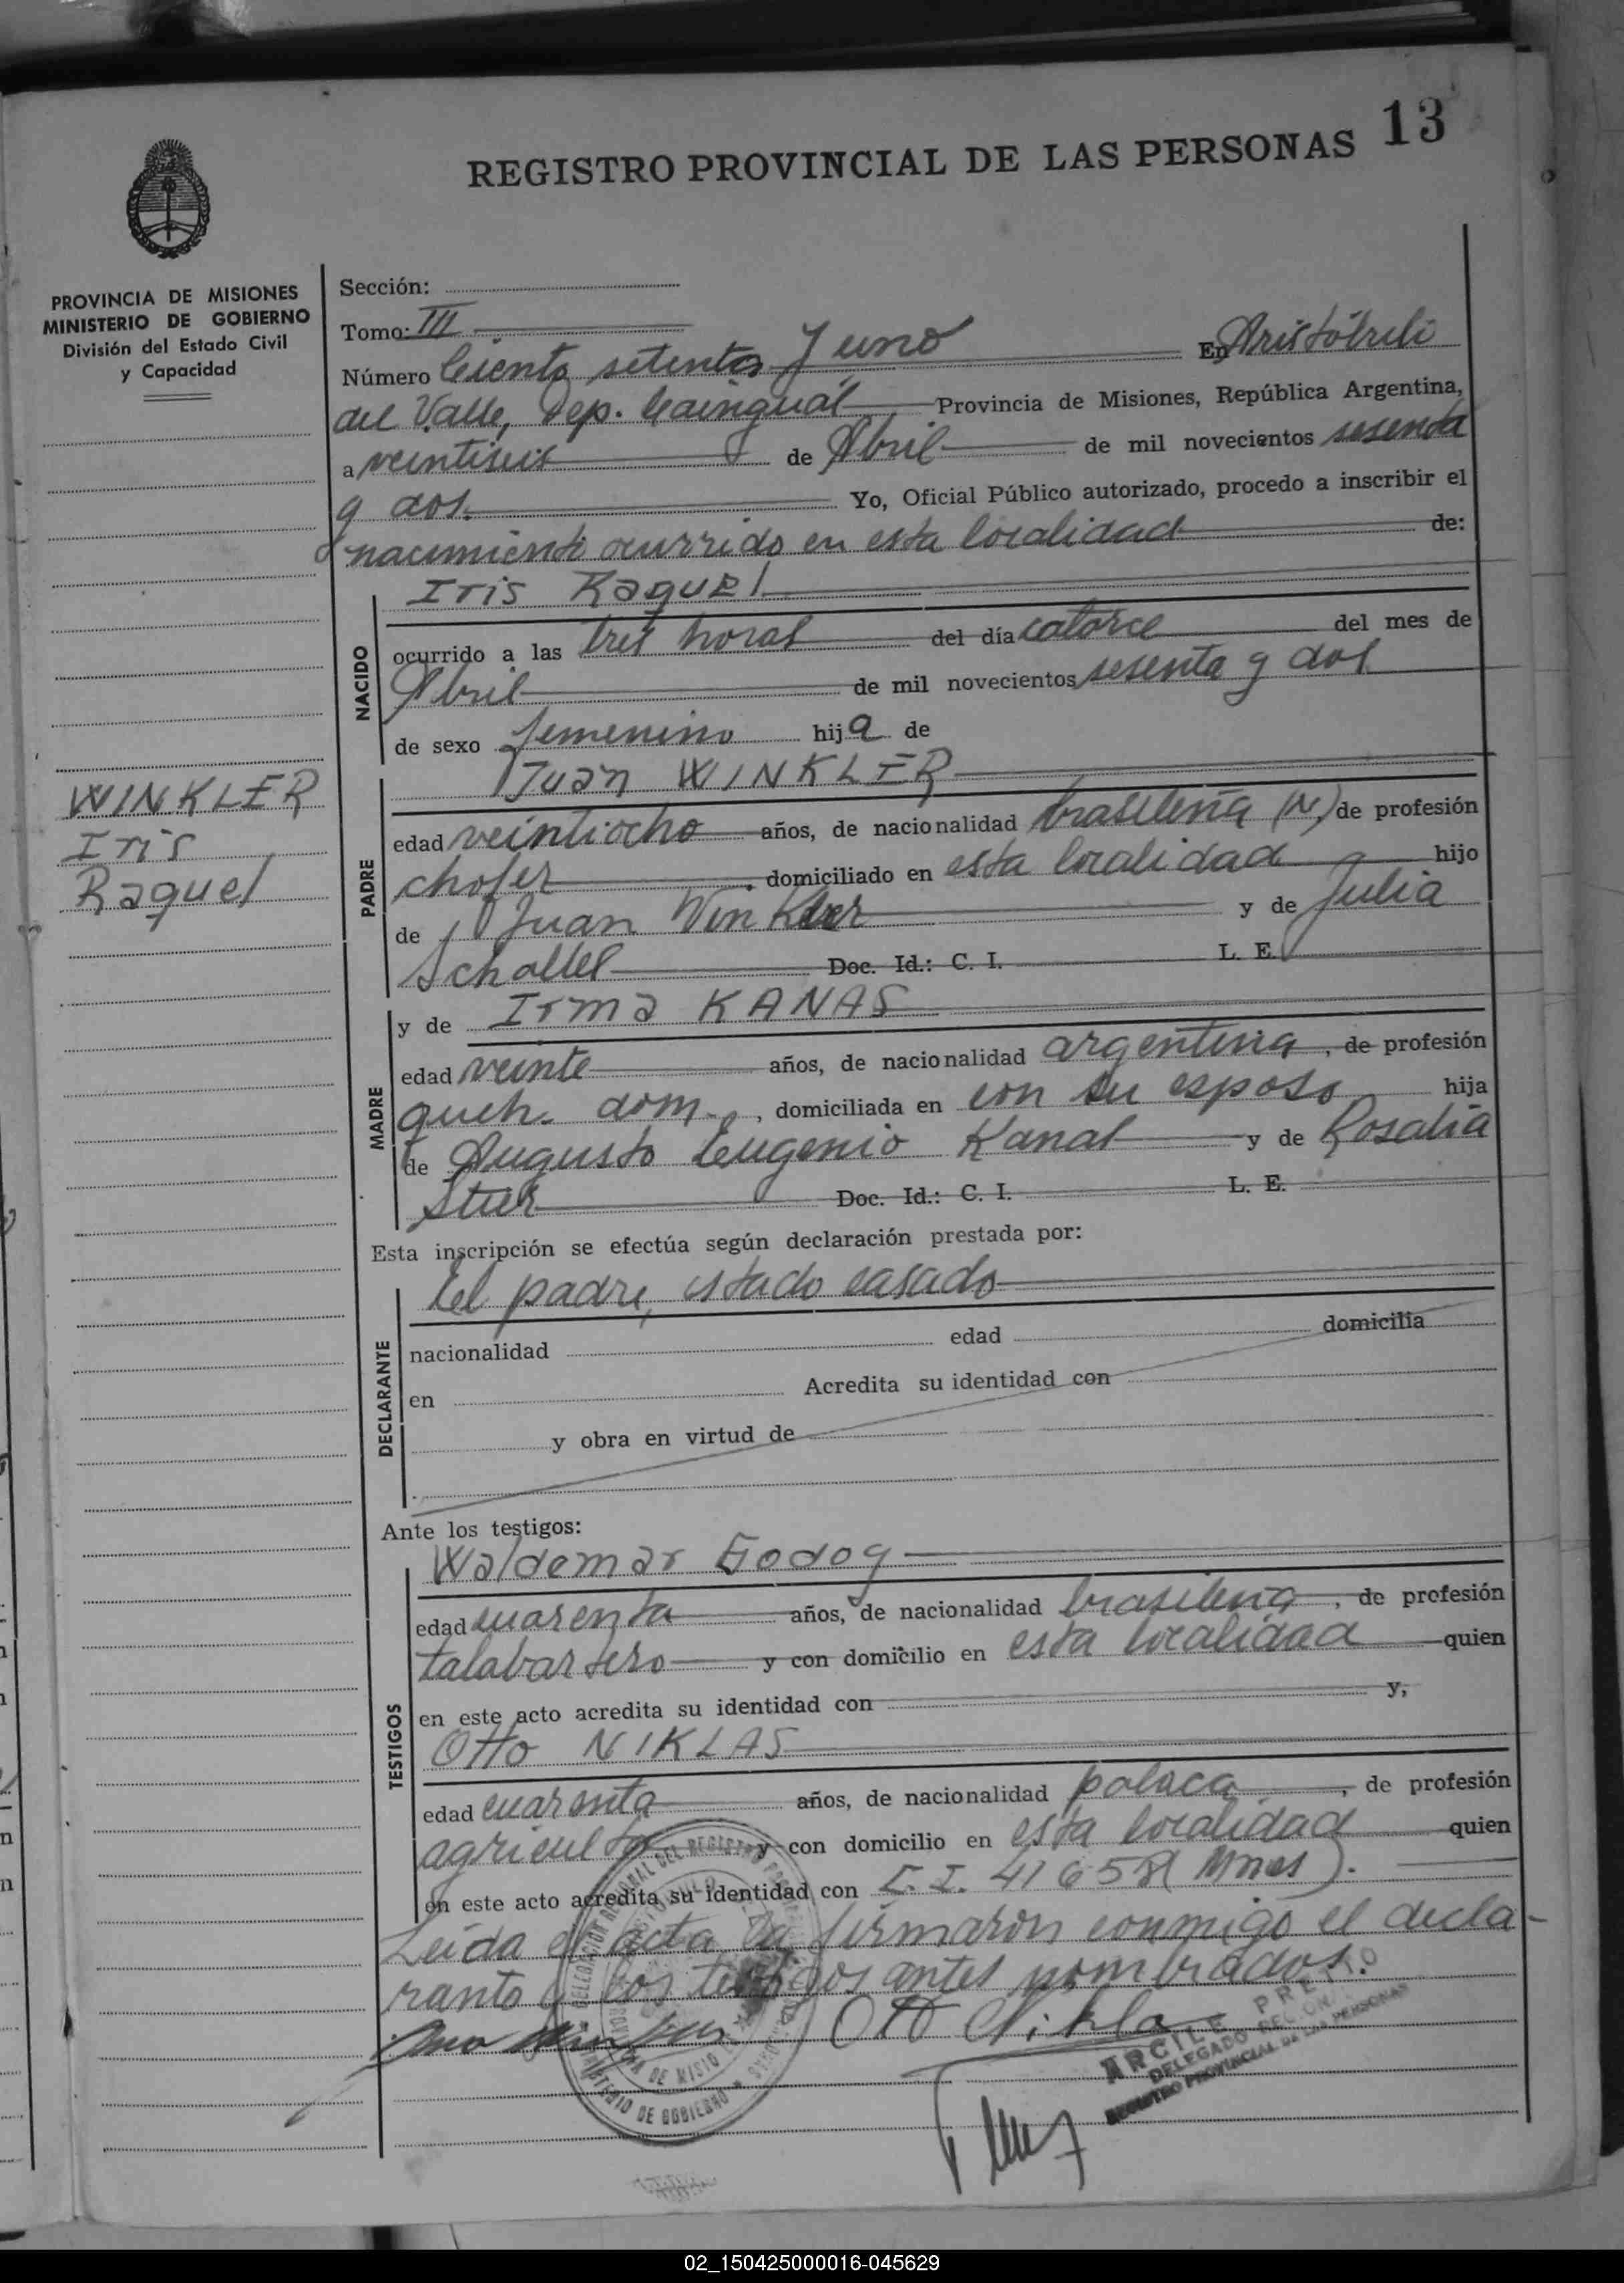 13
REGISTRO PROVINCIAL DE LAS PERSONAS
PROVINCIA DE MISIONES
MINISTERIO DE GOBIERNO
División del Estado Civil
y Capacidad
Sección:
Tomo: III
Número Ciento setenta y uno En Aristóbulo
del Valle, Dep. Cainguás Provincia de Misiones, República Argentina,
a veintiseis de Abril de mil novecientos sesenta
y dos. Yo, Oficial Público autorizado, procedo a inscribir el
nacimiento ocurrido en esta localidad de:
NACIDO
Iris Raquel
ocurrido a las tres horas del día catorce del mes de
Abril de mil novecientos sesenta y dos
de sexo femenino hija de
WINKLER
Iris
Raquel
PADRE
Juan WINKLER
edad veintiocho años, de nacionalidad brasileña (N) de profesión
chofer, domiciliado en esta localidad hijo
de Juan Winkler y de Julia
Schaller Doc. Id.: C. I. L. E.
MADRE
y de Irma KANAS
edad veinte años, de nacionalidad argentina, de profesión
queh. dom., domiciliada en con su esposo hija
de Augusto Eugenio Kanas y de Rosalia
Doc. Id.: C. I. L. E.
Esta inscripción se efectúa según declaración prestada por:
DECLARANTE
el padre, estado casado
nacionalidad edad domicilia
en Acredita su identidad con
y obra en virtud de
Ante los testigos:
TESTIGOS
Waldemar Godoy
edad cuarenta años, de nacionalidad brasileña, de profesión
talabartero y con domicilio en esta localidad quien
en este acto acredita su identidad con y,
Otto NIKLAS
edad cuarenta años, de nacionalidad polaca, de profesión
agricultor y con domicilio en esta localidad quien
en este acto acredita su identidad con C.I. 41658 (Mnes).
Leida el acta la firmaron conmigo el decla-
rante y los testigos antes nombrados.
Otto Nikla
ARCILE PRETTO
DELEGADO REGIONAL
REGISTRO PROVINCIAL DE LAS PERSONAS
MINISTERIO DE GOBIERNO
02_150425000016-045629